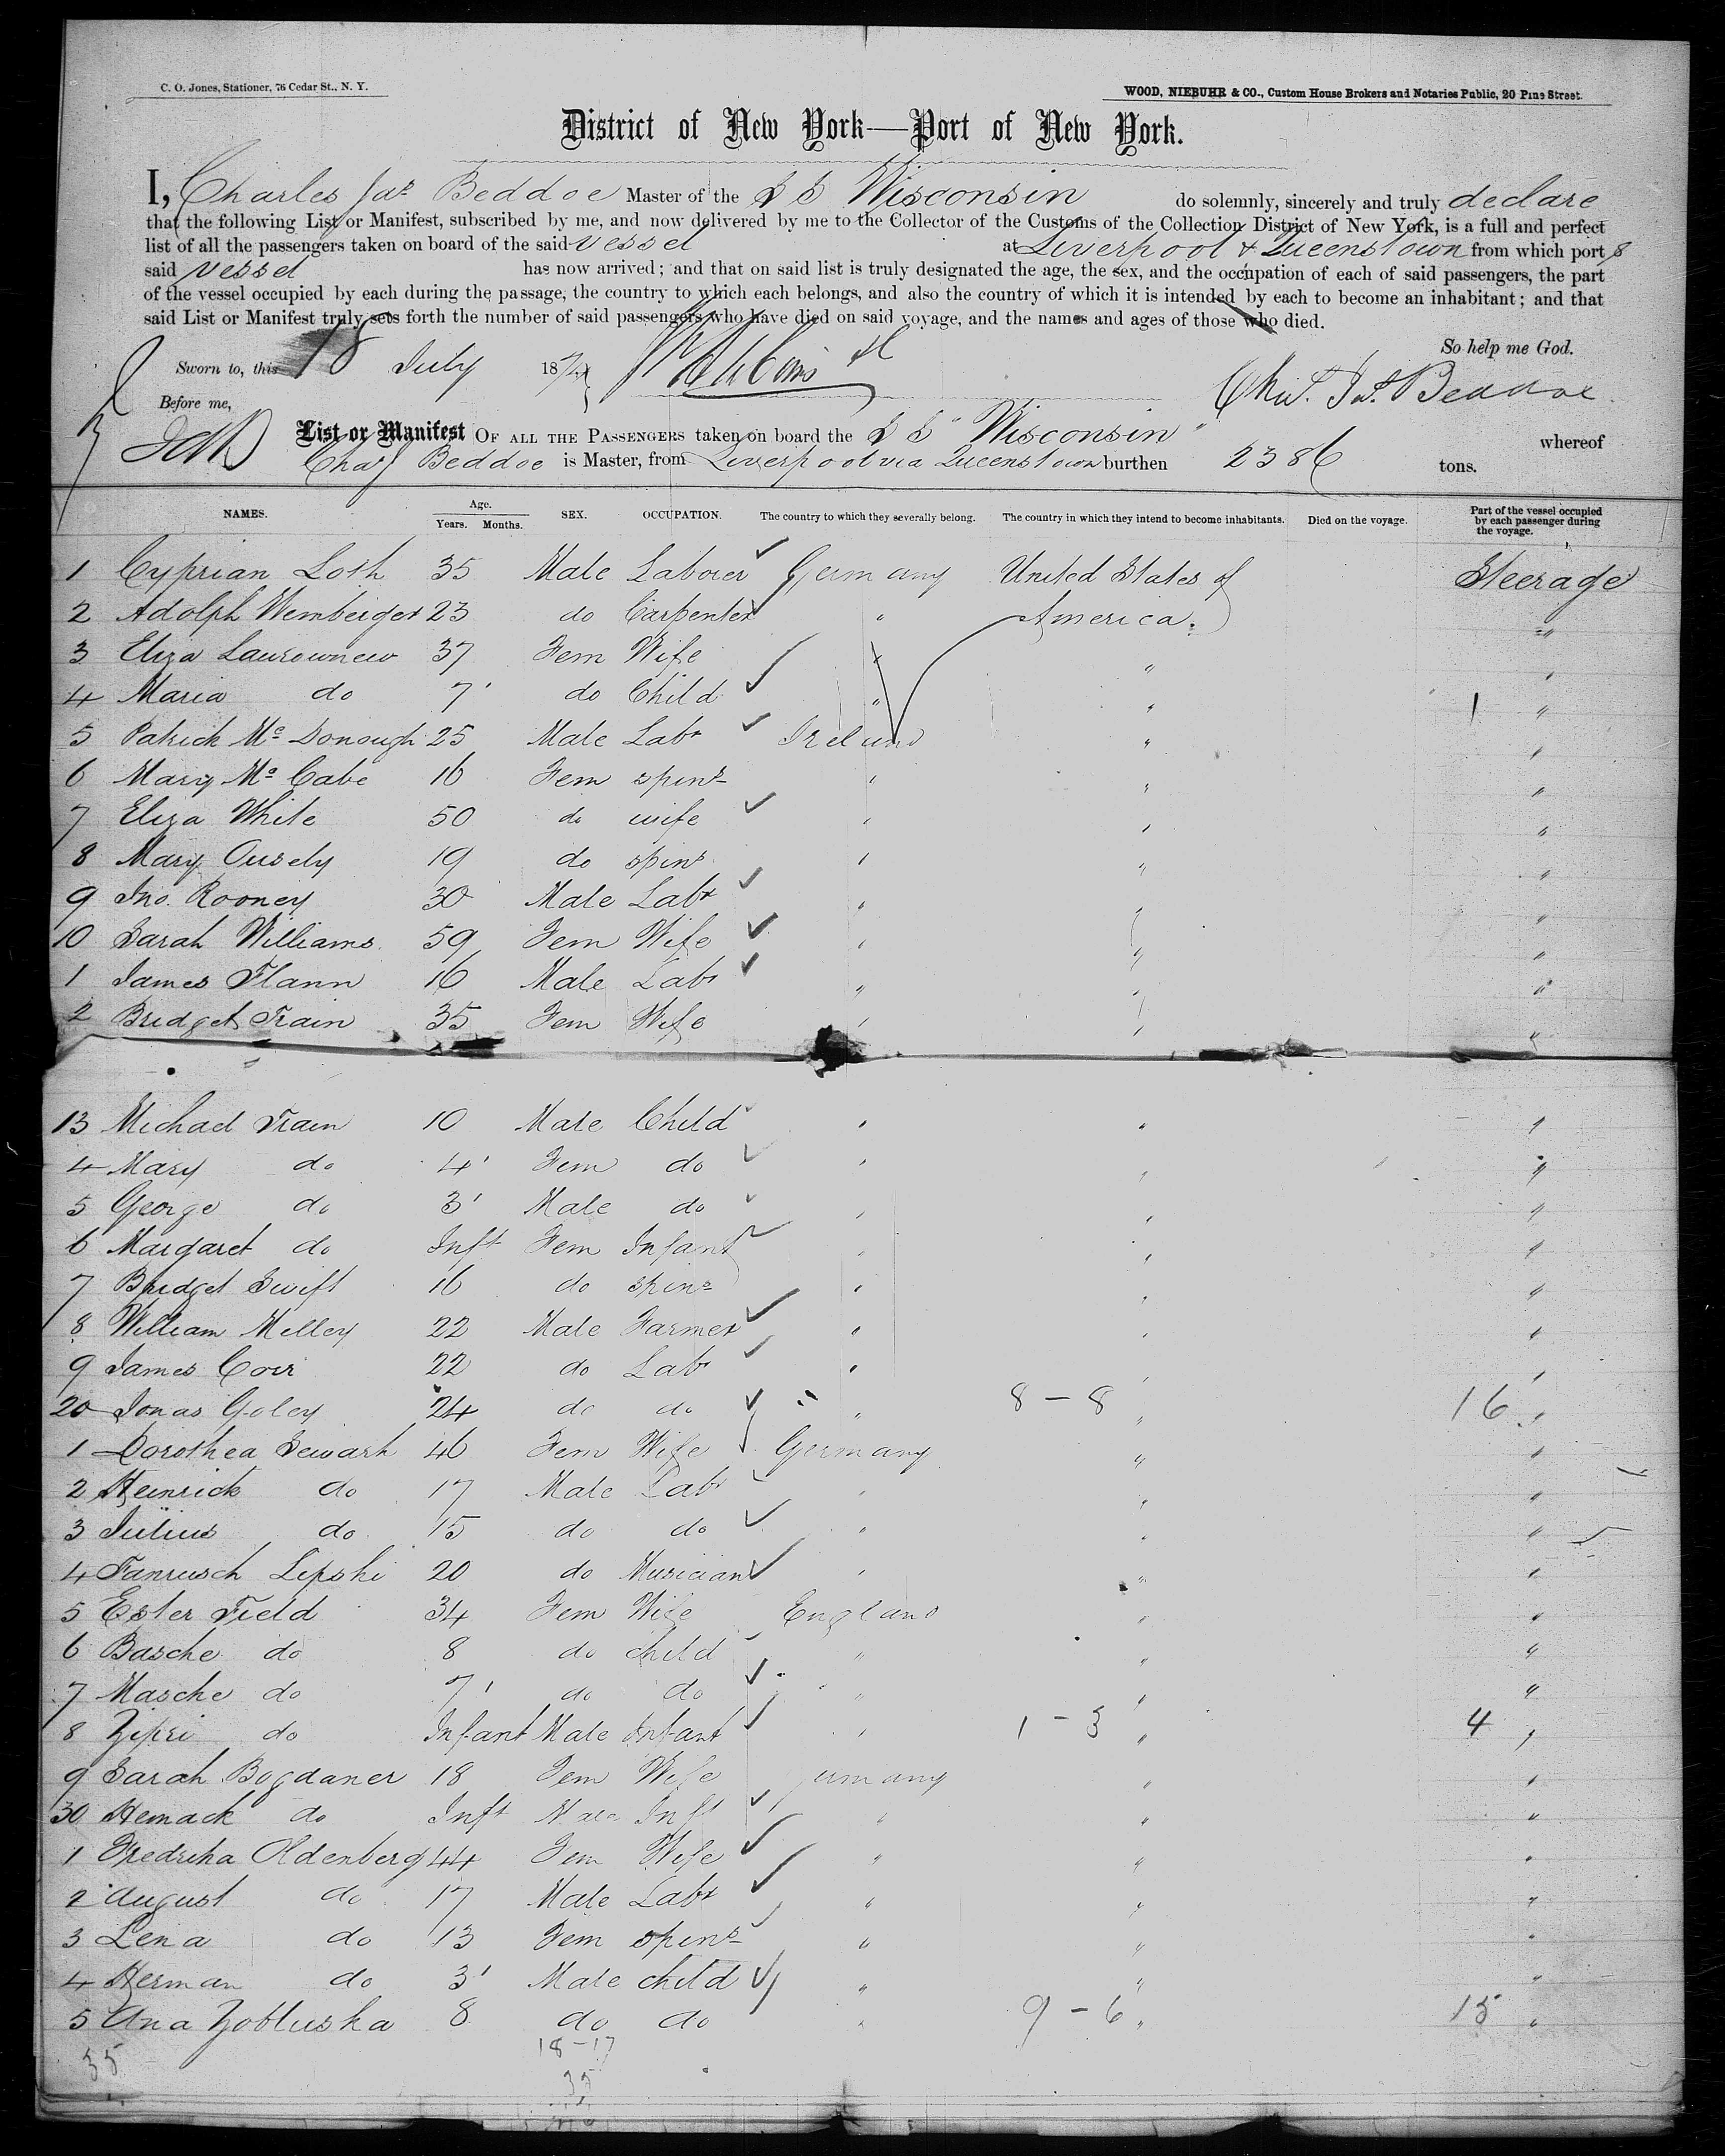 C. O. Jones, Stationer, 76 Cedar St., N. Y.
WOOD, NIEBUHR & CO., Custom House Brokers and Notaries Public, 20 Pine Street.
District of New York—Port of New York.
I, Charles Jas Beddoe Master of the S S Wisconsin do solemnly, sincerely and truly declare
that the following List or Manifest, subscribed by me, and now delivered by me to the Collector of the Customs of the Collection District of New York, is a full and perfect
list of all the passengers taken on board of the said vessel at Liverpool & Queenstown from which port s
said vessel has now arrived; and that on said list is truly designated the age, the sex, and the occupation of each of said passengers, the part
of the vessel occupied by each during the passage, the country to which each belongs, and also the country of which it is intended by each to become an inhabitant; and that
said List or Manifest truly sets forth the number of said passengers who have died on said voyage, and the names and ages of those who died.
So help me God.
Sworn to, this 18 July 187
Chas. Jas. Beddoe
Before me,
List or Manifest OF ALL THE PASSENGERS taken on board the S S "Wisconsin" whereof
Chas J Beddoe is Master, from Liverpool via Queenstown burthen 2386 tons.
NAMES. Age. Years. Months. SEX. OCCUPATION. The country to which they severally belong. The country in which they intend to become inhabitants. Died on the voyage. Part of the vessel occupied by each passenger during the voyage.
1 Cyprian Losh 35 Male Laborer Germany United States of Steerage
2 Adolph Wemberger 23 do Carpenter " America. "
3 Eliza Laurownew 37 Fem Wife " " "
4 Maria do 7 do Child " " 1 "
5 Patrick Mc Donough 25 Male Labr Ireland " "
6 Mary Mc Cabe 16 Fem spinr " " "
7 Eliza White 50 do wife " " "
8 Mary Ousely 19 do spinr " " "
9 Jno. Rooney 30 Male Labr " " "
10 Sarah Williams 59 Fem Wife " " "
1 James Flann 16 Male Labr " " "
2 Bridget Train 35 Fem Wife " " "
13 Michael Train 10 Male Child " " "
4 Mary do 4 Fem do " " "
5 George do 3 Male do " " "
6 Margaret do Inft Fem Infant " " "
7 Bridget Swift 16 do spinr " " "
8 William Melley 22 Male Farmer " " "
9 James Corr 22 do Labr " " "
20 Jonas Goley 24 do do " 8 - 8 " 16 "
1 Dorothea Sewark 46 Fem Wife Germany " "
2 Heinrich do 17 Male Labr " " "
3 Julius do 15 do do " " "
4 Fanrusch Lipski 20 do Musician " " "
5 Ester Field 34 Fem Wife England " "
6 Basche do 8 do child " " "
7 Masche do 7 do do " " "
8 Zipri do Infant Male Infant " 1 - 3 " 4 "
9 Sarah Bogdaner 18 Fem Wife Germany " "
30 Hemack do Inft Male Inft " " "
1 Fredrika Oldenberg 44 Fem Wife " " "
2 August do 17 Male Labr " " "
3 Lena do 13 Fem spinr " " "
4 Herman do 3 Male child " " "
5 Ana Zobluska 8 do do " 9 - 6 " 15 "
18 - 17
35 35